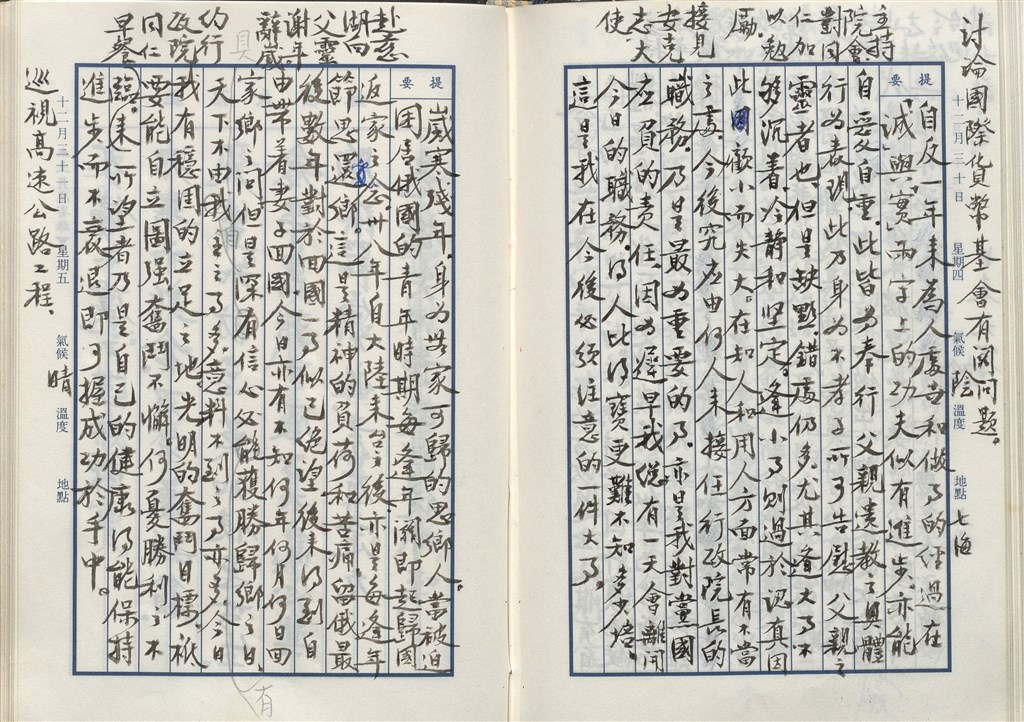 討論國際貨幣基會有関問題。
提要
十二月三十日
星期四
氣候 陰
溫度
地點 七海
自反一年來為人處世和做事的經過在
「誠」與「實」兩字上的功夫似有進步。亦能
自妥父自重。此皆為奉行 父親遺教之具體
行為表現。此乃身為不孝子所可告慰 父親之
靈者也。但是缺點、錯處仍多。尤其逢大事不
夠沉着、冷靜和堅定。逢小事則過於認真因
此因歡小而失大。在知人和用人方面常有不當
之處。今後究应由何人來接任行政院長的
職務。乃是最为重要的事。亦是我對黨國
应負的責任。因为遲早我總有一天會離開
今日的職務。得人比得寶更難不知多少倍。
這是我在今後必須注意的一件大事。
主持
院會
對同
仁加
以勉
勵。
接見
安克
志大
使。
提要
十二月三十一日
星期五
氣候 晴
溫度
地點
歲寒殘年。身为無家可歸的思鄉人。當被迫
困居俄國的青年時期每逢年關即起歸國
返家之念卅八年自大陸來台後亦是每逢年
節思還鄉。這是精神的負荷和苦痛。留俄最
後數年對於回國一事似已絕望後來得到自
由帶着妻子回國。今日亦有不知何年何月何日回
家鄉之問。但是深有信心必能獲勝歸鄉之日。
天下不由我主之事多。意料不到之事亦多。今日
我有穩固的立足之地光明的奮鬥目標。祇
要能自立圖强。奮鬥不懈。何憂勝利之不
臨。來所望者乃是自己的健康得能保持
進步而不衰退即可握成功於手中。
赴慈
湖向
父靈
謝年
辭歲
約行
政院
同仁
早餐
巡視高速公路工程。
有